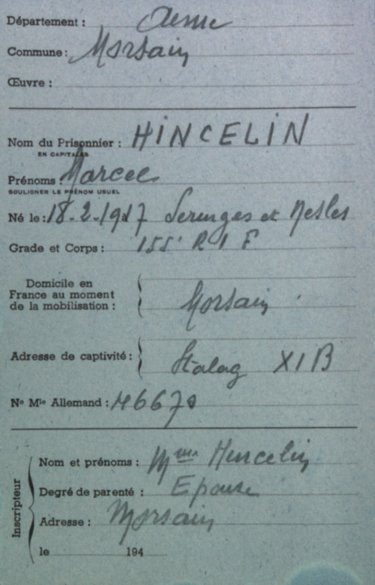 Département : Aisne
Commune : Morsain
Œuvre :
Nom du Prisonnier : HINCELIN
EN CAPITALES
Prénoms : Marcel
SOULIGNER LE PRÉNOM USUEL
Né le : 18-2-1917 Seringes et Nesles
Grade et Corps : 155e R I F
Domicile en
France au moment
de la mobilisation : Morsain
Adresse de captivité : Stalag XI B
No Mle Allemand : 46670
Inscripteur
Nom et prénoms : Mme Hincelin
Degré de parenté : Epouse
Adresse : Morsain
le 194